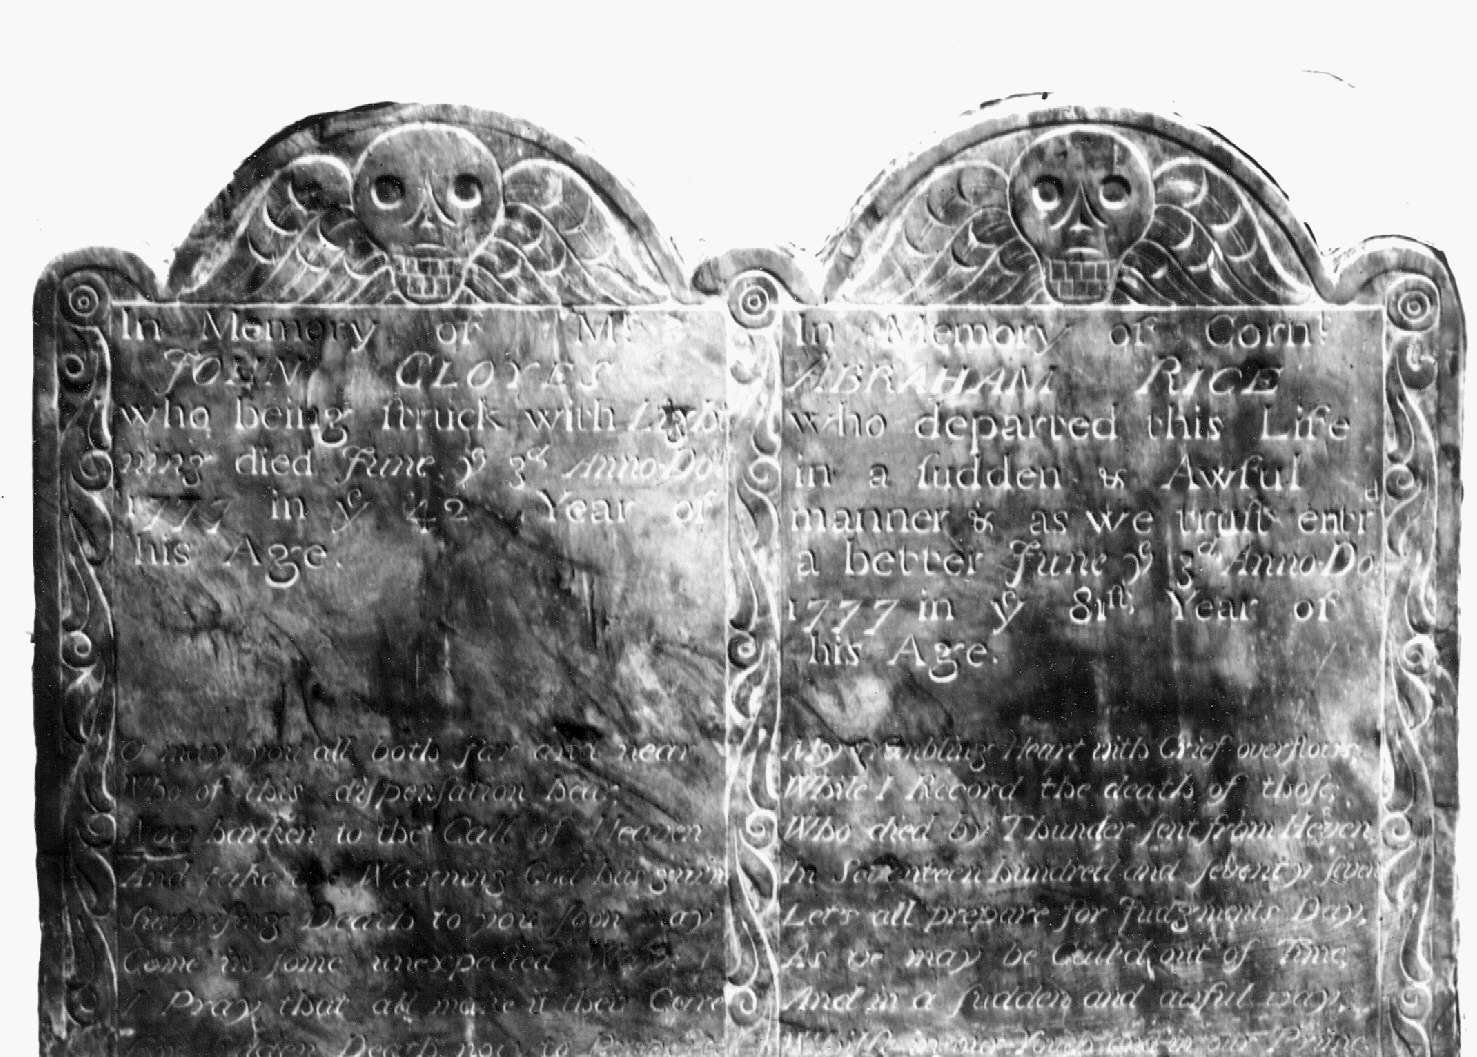 In Memory of Mr.
JOHN CLOYES
who being ſtruck with Light
ning died June yͤ 3ᵈ Anno Do
1777 in yͤ 42 Year of
his Age.
O may you all both far and near
Who of this diſpenſation hear,
Now harken to the Call of Heaven
And take the Warning God has given
Surpriſing Death to you ſoon may
Come in ſome unexpected Way.
I Pray that all make it their Care
Death
In Memory of Cornᵗ
ABRAHAM RICE
who departed this Life
in a ſudden & Awful
manner & as we truſt entrᵈ
a better June yͤ 3ᵈ Anno Do
1777 in yͤ 81ſt, Year of
his Age.
My trembling Heart with Grief overflows,
While I Record the death of thoſe,
Who died by Thunder ſent from Heven
In Seventeen hundred and ſeventy ſeven
Let's all prepare for Judgments Day,
As we may be Call'd out of Time,
And in a ſudden and awful way,
Whilſt in our Youth and in our Prime